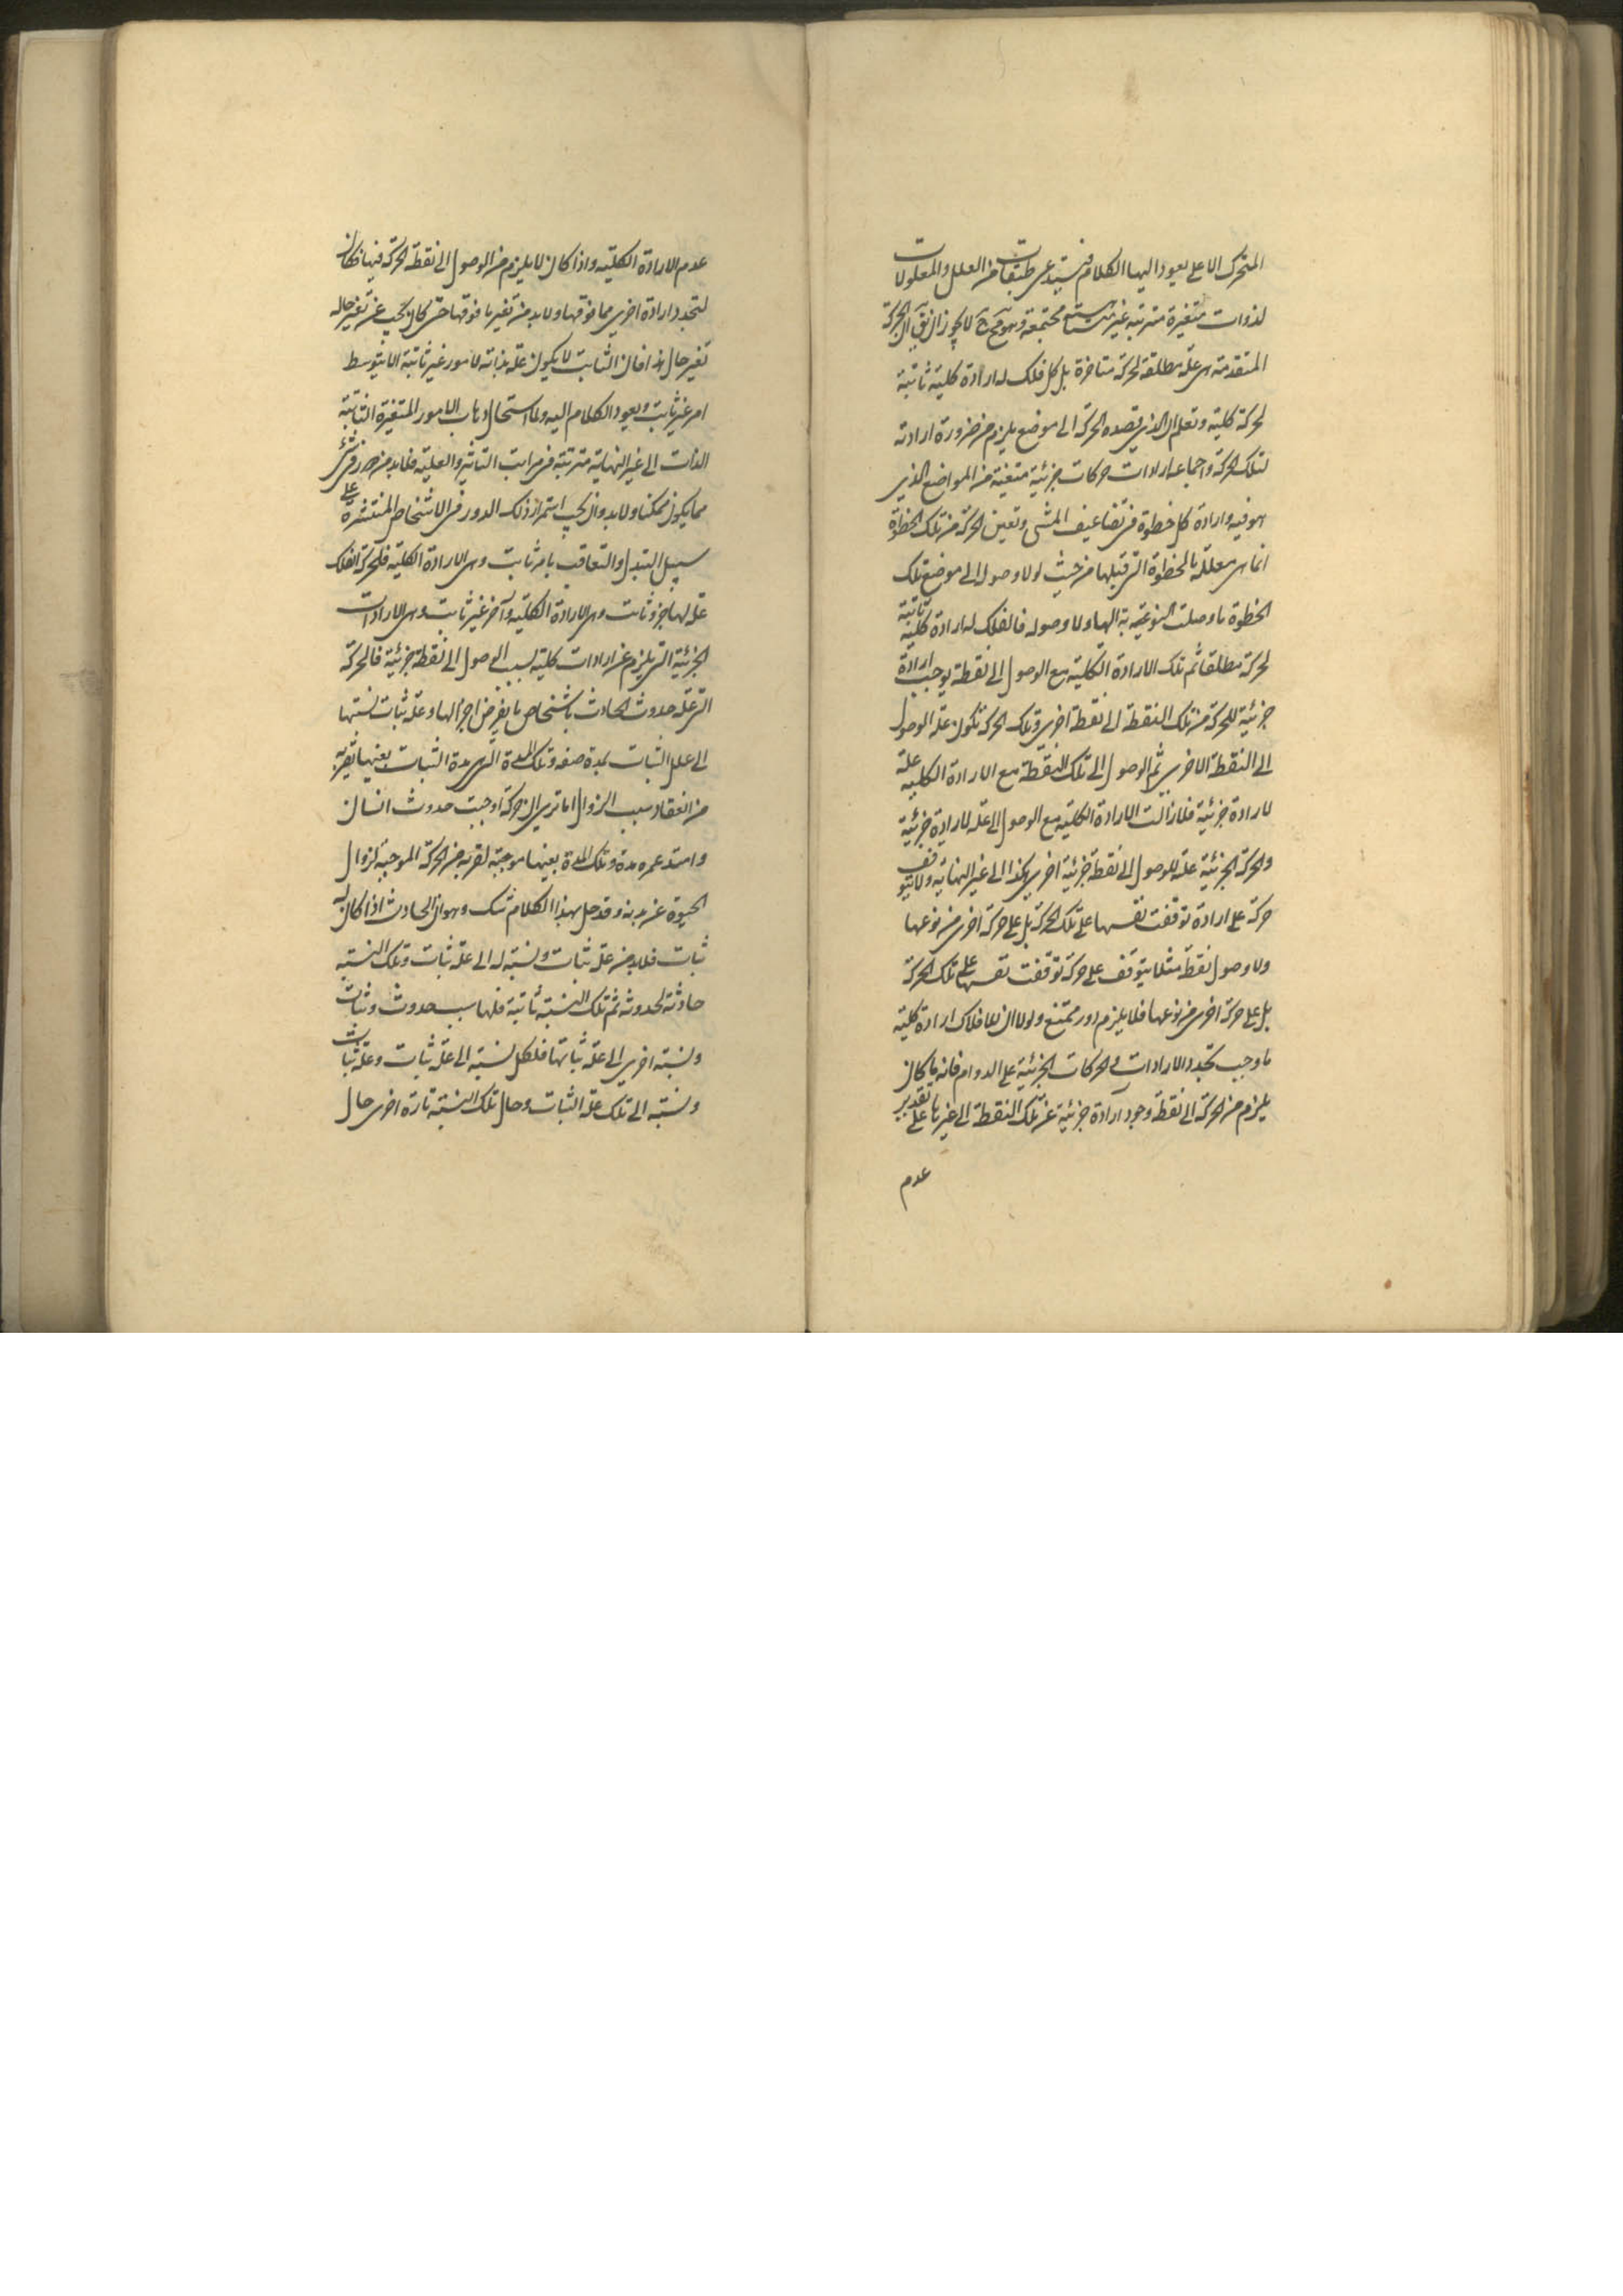 المتحرك الاعلى يعود اليها الكلام فيستدعى طبقات من العلل والمعلولات
لذوات متغيرة مترتبه غير متناهية مجتمعة وهو مح لا يجوز ان يق ان الحركة
المتقدمة هى علة مطلقة لحركة متاخرة بل كل فلك له ارادة كلية ثابتة
لحركة كلية وتعلم ان الذي قصده الحركة الى موضع يلزم من ضرورة ارادته
لتلك الحركة واجماعه ارادات حركات جزئية متعينة من المواضع الذي
هو فيه وارادة كل خطوة فى تضاعيف المشى وتعين الحركة من تلك الخطوة
انما هى معللة بالخطوة التى قبلها من حيث لولا وصوله الى موضع تلك
الخطوة ما وصلت النوعية به اليها ولا وصوله فالفلك له ارادة كلية ثابتة
لحركة مطلقا ثم تلك الارادة الكلية مع الوصول الى نقطة يوجب ارادة
جزئية للحركة من تلك النقطة الى نقطة اخرى وتلك الحركة تكون علة الوصول
الى النقطة الاخرى ثم الوصول الى تلك النقطة مع الارادة الكلية علة
لارادة جزئية فلا زالت الارادة الكلية مع الوصول الى علة لارادة جزئية
والحركة الجزئية علة للوصول الى نقطة جزئية اخرى هكذا الى غير النهاية ولا يتوقف
حركة على ارادة توقفت نفسها على تلك الحركة بل على حركة اخرى من نوعها
ولا وصول نقطة مثلا يتوقف على حركة توقفت نفسها على تلك الحركة
بل على حركة اخرى من نوعها فلا يلزم دور ممتنع ولولا ان للافلاك ارادة كلية
ما وجب تجدد الارادات والحركات الجزئية على الدوام فانه ما كان
يلزم من الحركة الى نقطة وجود ارادة جزئية عن تلك النقطة الى غيرها على تقدير
عدم
عدم الارادة الكلية واذا كان لا يلزم من الوصول الى نقطة الحركة فيها فكان
لتجدد ارادة اخرى مما فوقها ولا بد من تغير ما فوقها حتى كان يجب عن تغير حاله
تغير حال هذا فان الثابت لا يكون علة بذاته لامور غير ثابتة الا بتوسط
امر غير ثابت ويعود الكلام اليه ولما استحال ذهاب الامور المتغيرة الثابتة
الذات الى غير النهاية مترتبة فى مراتب التاثير والعلية فلا بد من دور فى شئ
مما يكون ممكنا ولا بد وان يجب استمرار ذلك الدور فى الاشخاص المنتشرة على
سبيل التبدل والتعاقب بامر ثابت وهى الارادة الكلية فلحركة الفلك
علة لها جزء ثابت وهى الارادة الكلية وآخر غير ثابت وهى الارادات
الجزئية التى يلزم عن ارادات كلية بسبب الوصول الى نقطة جزئية فالحركة
التى علة حدوث الحادث باشخاص ما يفرض اجزالها وعلة ثبات نسبتها
الى علل الثبات بمدة صفه وتلك المدة التى هى مدة الثبات بعينها يقربه
من انعقاد سبب الزوال اما ترى ان حركة اوجبت حدوث انسان
وامتد عمره مدة وتلك المدة بعينها موجبة لقربه من الحركة الموجبة لزوال
الحيوة عن بدنه وقد حل بهذا الكلام شك وهو ان الحادث اذا كان له
ثبات فلا بد من علة ثبات ونسبته له الى علة ثبات وتلك النسبة
حادثة لحدوثه ثم تلك النسبة ثابتة فلها سبب حدوث وثبات
ونسبة اخرى الى علة ثباتها فلكل نسبة الى علة ثبات وعلة ثبات
ونسبة الى تلك علة الثبات وحال تلك النسبة تارة اخرى حال